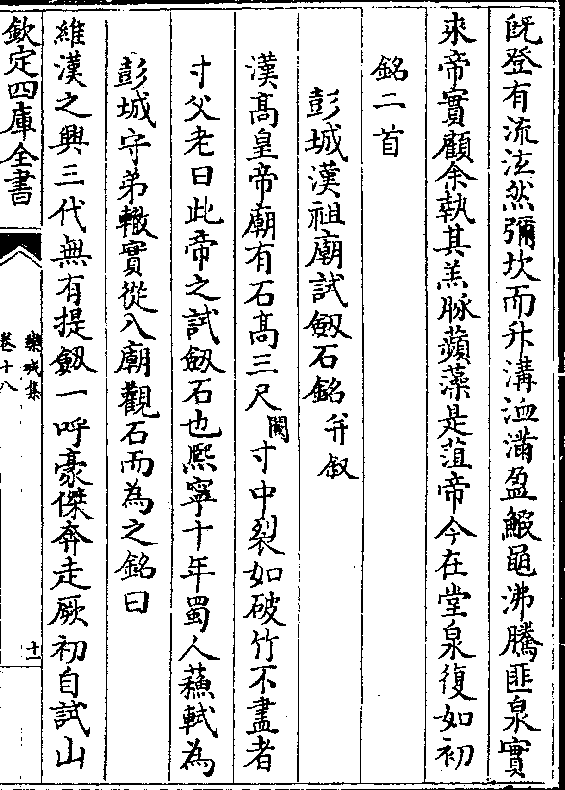 旣登有流泫然彌坎而升溝洫滿盈鰕黽沸騰匪泉實
來帝實顧余執其羔豚蘋藻是葅帝今在堂泉復如初
銘二首
彭城漢祖廟試劔石銘幷叙
漢髙皇帝廟有石髙三尺闕寸中裂如破竹不盡者
寸父老曰此帝之試劔石也熙寧十年蜀人蘓軾為
彭城守弟轍實從入廟觀石而為之銘曰
維漢之興三代無有提劔一呼豪傑奔走厥初自試山
欽定四庫全書
欒城集
卷十八
十一